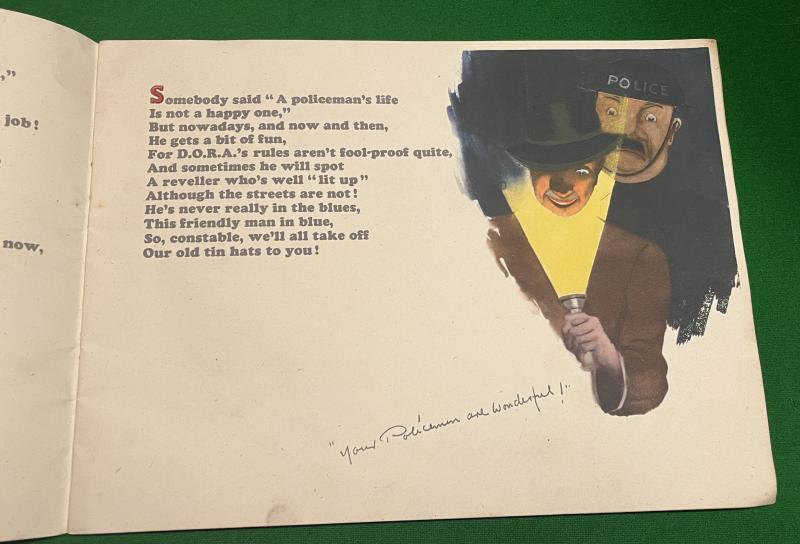 ,”
job!
now,
Somebody said “A policeman’s life
Is not a happy one,”
But nowadays, and now and then,
He gets a bit of fun,
For D.O.R.A.’s rules aren’t fool-proof quite,
And sometimes he will spot
A reveller who’s well “lit up”
Although the streets are not!
He’s never really in the blues,
This friendly man in blue,
So, constable, we’ll all take off
Our old tin hats to you!
POLICE
"Your Policemen are wonderful!"